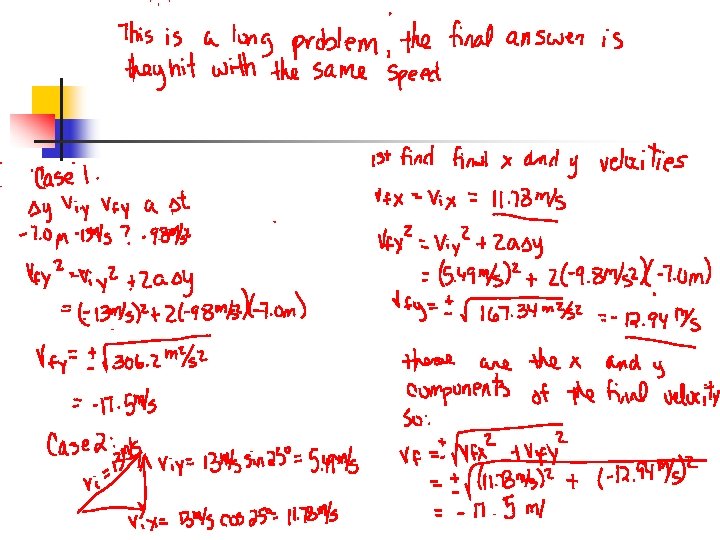 This is a long problem, the final answer is
they hit with the same speed
Case 1.
Δy Viy Vfy a Δt
-7.0m -13m/s ? -9.8m/s²
Vfy² = Viy² + 2aΔy
= (-13m/s)² + 2(-9.8m/s²)(-7.0m)
Vfy = ±√306.2 m²/s²
= -17.5m/s
Case 2:
Vi = 13m/s Viy = 13m/s sin 25° = 5.49m/s
Vix = 13m/s cos 25° = 11.78m/s
1st find final x and y velocities
Vfx = Vix = 11.78 m/s
Vfy² = Viy² + 2aΔy
= (5.49m/s)² + 2(-9.8m/s²)(-7.0m)
Vfy = ±√167.34 m²/s² = -12.94 m/s
these are the x and y
components of the final velocity
so:
Vf = ±√Vfx² + Vfy²
= ±√(11.78m/s)² + (-12.94m/s)²
= -17.5 m/